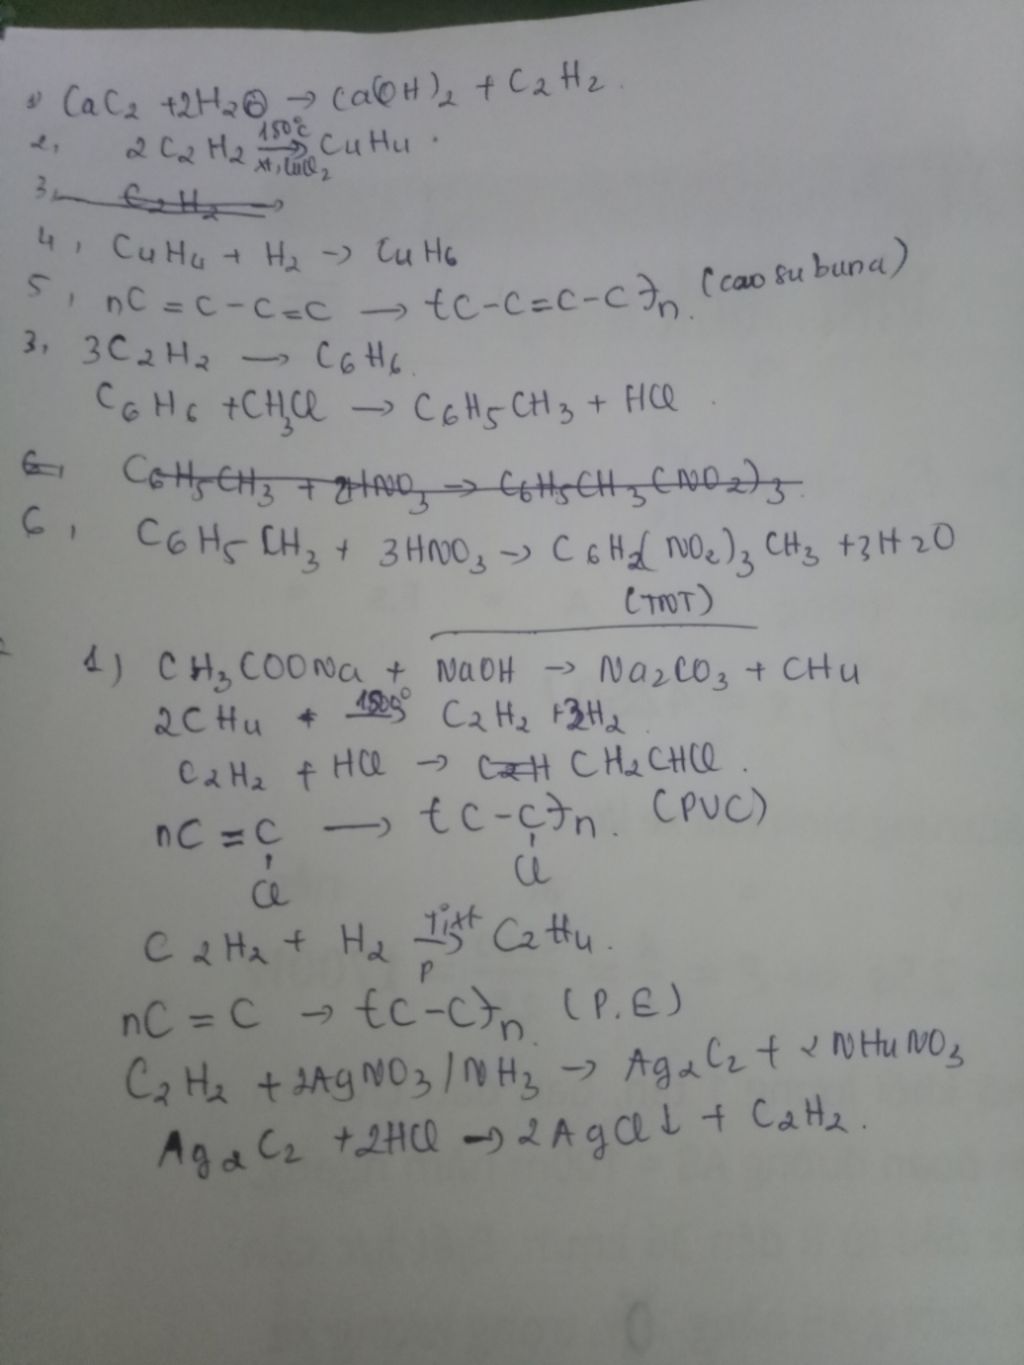 1) CaC2 + 2H2O → Ca(OH)2 + C2H2.
2, 2C2H2 150°C → xt, CuCl2 C4H4.
3, C2H2 →
4, C4H4 + H2 → C4H6
5, nC = C - C = C → {C - C = C - C}n. (cao su buna)
3, 3C2H2 → C6H6.
C6H6 + CH3Cl → C6H5CH3 + HCl.
6, C6H5CH3 + HNO3 → C6H5CH3(NO2)3
6, C6H5CH3 + 3HNO3 → C6H2(NO2)3CH3 + 3H2O
(TNT)
1) CH3COONa + NaOH → Na2CO3 + CH4
2CH4 1500° → C2H2 + 3H2.
C2H2 + HCl → C2H CH2CHCl.
nC = C → {C - C}n. (PVC)
Cl Cl
C2H2 + H2 → P C2H4.
nC = C → {C - C}n. (P.E)
C2H2 + 2AgNO3/NH3 → Ag2C2 + 2NH4NO3
Ag2C2 + 2HCl → 2AgCl↓ + C2H2.